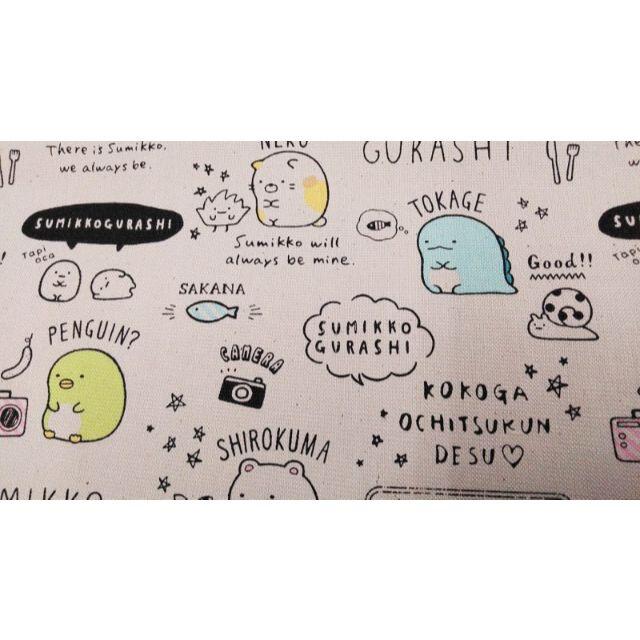 There is Sumikko,
we always be.
NEKO
GURASHI
SUMIKKOGURASHI
Tapi
oca
Sumikko will
always be mine.
TOKAGE
Good!!
SAKANA
SUMIKKO
GURASHI
PENGUIN?
CAMERA
KOKOGA
OCHITSUKUN
DESU♡
SHIROKUMA
The
we
SU
Tapi
oca